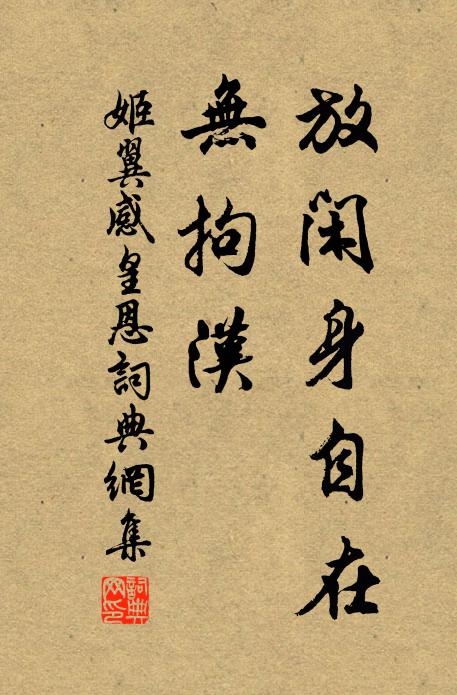 放閑身自在
無拘漢
姬翼感皇恩詞典網集
詞典
网印